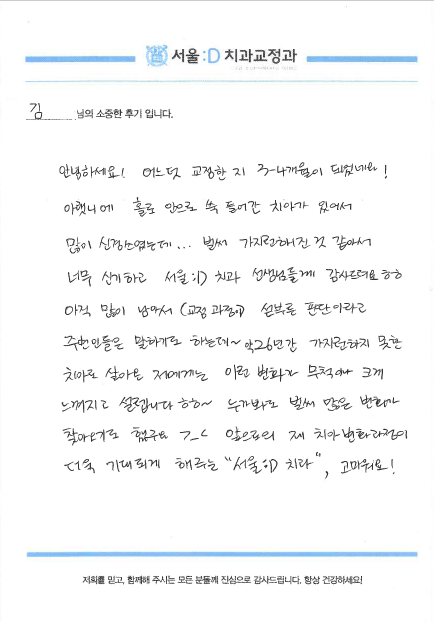 서울:D 치과교정과
김 님의 소중한 후기 입니다.
안녕하세요! 어느덧 교정한 지 3-4개월이 되었네요!
아랫니에 홀로 안으로 쑥 들어간 치아가 있어서
많이 신경쓰였는데... 벌써 가지런해진 것 같아서
너무 신기하고 서울:D 치과 선생님들께 감사드려요 ㅎㅎ
아직 많이 남아서 (교정 과정이) 섣부른 판단이라고
주변인들은 말하기도 하는데~ 약 26년간 가지런하지 못한
치아로 살아온 저에게는 이런 변화가 무척이나 크게
느껴지고 설렙니다 ㅎㅎ~ 누가봐도 벌써 많은 변화가
찾아오기도 했구요 >_< 앞으로의 제 치아변화과정이
더욱 기대되게 해주는 "서울:D 치과", 고마워요!
저희를 믿고, 함께해 주시는 모든 분들께 진심으로 감사드립니다. 항상 건강하세요!